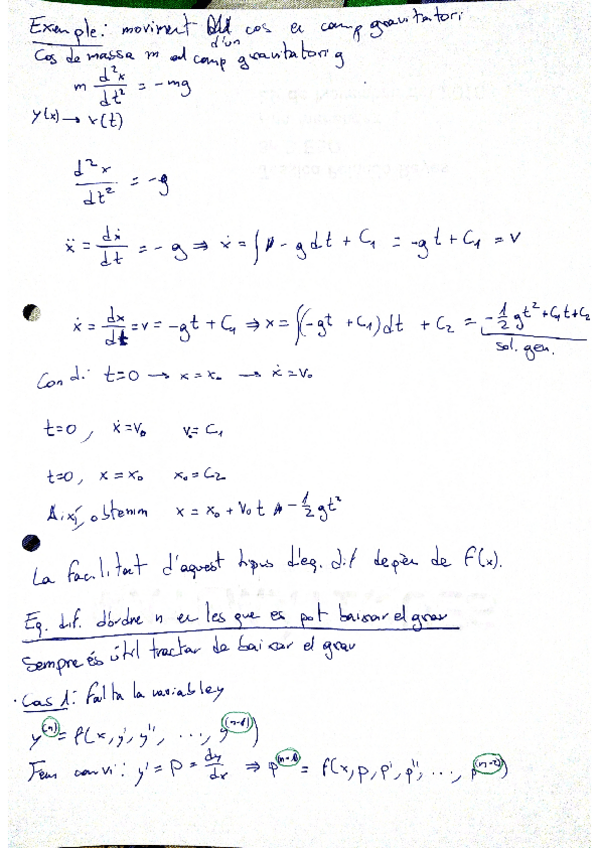 Exemple: moviment d'un cos en camp gravitatori
Cos de massa m al camp gravitatori g
m d²x/dt² = -mg
y(x) → x(t)
d²x/dt² = -g
ẍ = dẋ/dt = -g ⇒ ẋ = ∫ -g dt + C₁ = -gt + C₁ = v
ẋ = dx/dt = v = -gt + C₁ ⇒ x = ∫(-gt + C₁)dt + C₂ = -1/2 gt² + C₁t + C₂
sol. gen.
Cond: t=0 → x = x₀ → ẋ = v₀
t=0, ẋ=v₀ v₀=C₁
t=0, x=x₀ x₀=C₂
Així, obtenim x = x₀ + v₀t - 1/2 gt²
La facilitat d'aquest tipus d'eq. dif depèn de f(x).
Eq. dif. d'ordre n en les que es pot baixar el grau
Sempre és útil tractar de baixar el grau
· Cas 1: Falta la variable y
y⁽ⁿ⁾ = f(x, y', y'', ..., y⁽ⁿ⁻¹⁾)
Fem canvi: y' = p = dy/dx ⇒ p⁽ⁿ⁻¹⁾ = f(x, p, p', p'', ..., p⁽ⁿ⁻²⁾)